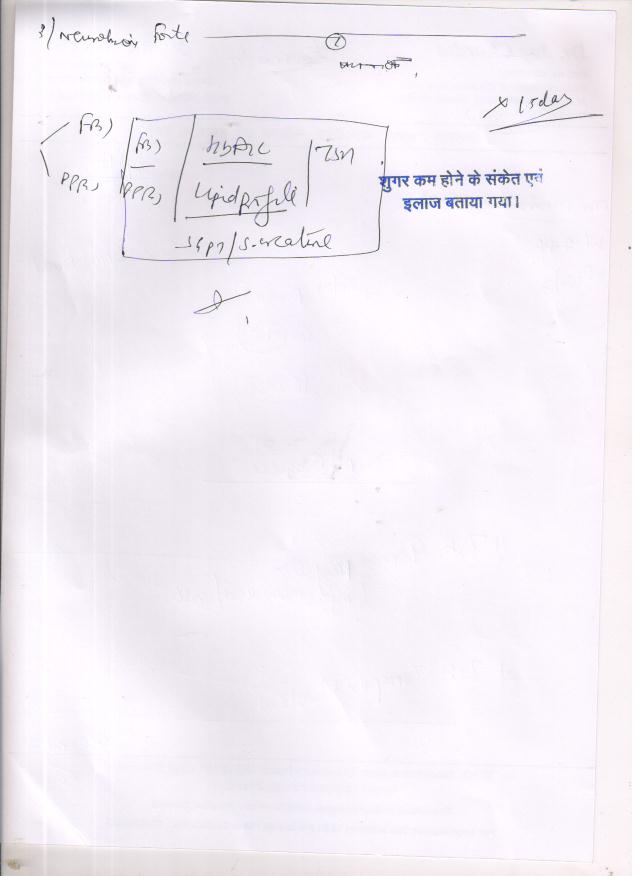 3/ Neurobion Forte ——— ①
x 15 day
FBS FBS / HbA1C / TSH
PPBS PPBS / Lipid profile
SGPT / S. creatine
शुगर कम होने के संकेत एवं
इलाज बताया गया।